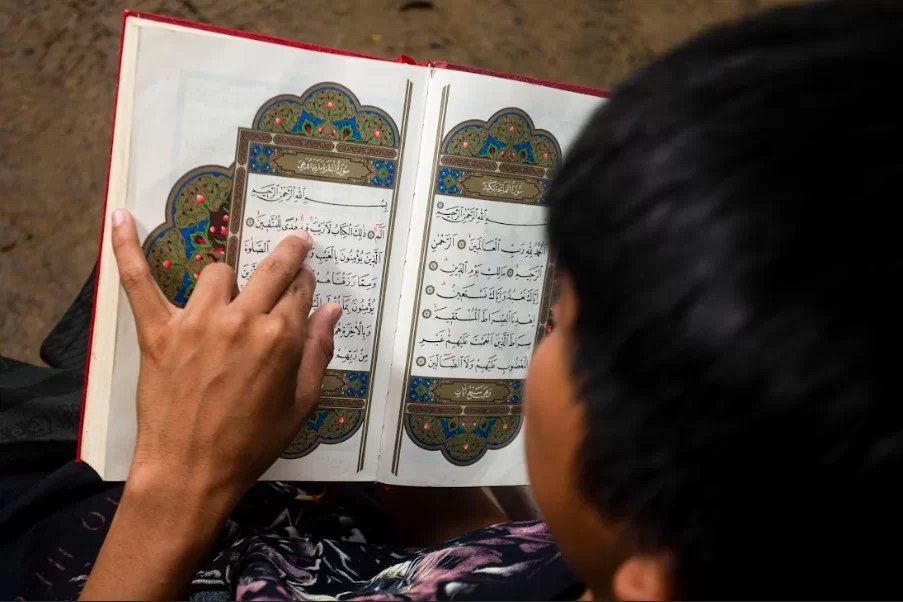 سُورَةُ الْفَاتِحَةِ مَكِّيَّة
بِسْمِ اللهِ الرَّحْمٰنِ الرَّحِيمِ
اَلْحَمْدُ لِلّٰهِ رَبِّ الْعَالَمِينَ ۝ اَلرَّحْمٰنِ
الرَّحِيمِ ۝ مَالِكِ يَوْمِ الدِّينِ ۝
اِيَّاكَ نَعْبُدُ وَاِيَّاكَ نَسْتَعِينُ ۝
اِهْدِنَا الصِّرَاطَ الْمُسْتَقِيمَ ۝
صِرَاطَ الَّذِينَ اَنْعَمْتَ عَلَيْهِمْ غَيْرِ
الْمَغْضُوبِ عَلَيْهِمْ وَلَا الضَّالِّينَ ۝
وَهِيَ سَبْعُ اٰيَاتٍ
سُورَةُ الْبَقَرَةِ مَدَنِيَّة وَهِيَ
بِسْمِ اللهِ الرَّحْمٰنِ الرَّحِيمِ
الٓمٓ ۝ ذٰلِكَ الْكِتَابُ لَا رَيْبَ فِيهِ هُدًى لِلْمُتَّقِينَ ۝
اَلَّذِينَ يُؤْمِنُونَ بِالْغَيْبِ الصَّلٰوةَ
وَمِمَّا رَزَقْنَاهُمْ
يُؤْمِنُونَ بِمَا
وَبِالْاٰخِرَةِ هُمْ
مِنْ رَبِّهِمْ